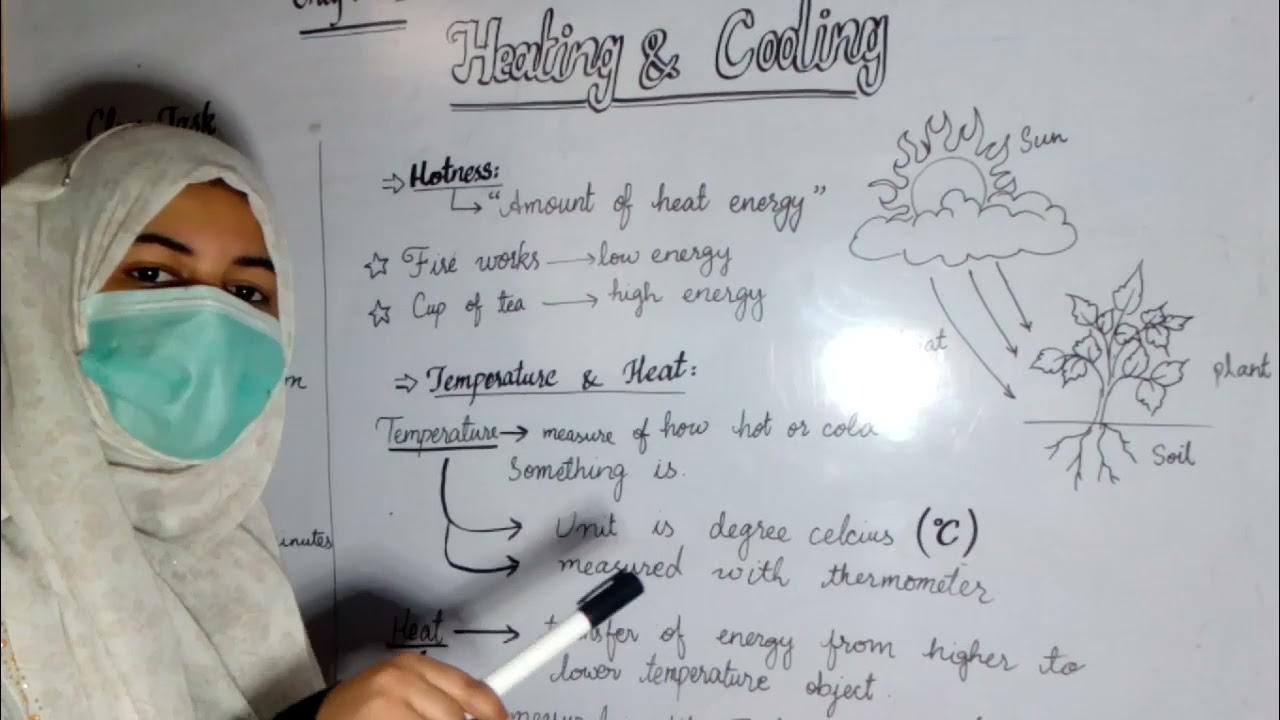 Heating & Cooling
Class Task
⇒ Hotness:
"Amount of heat energy"
☆ Fire works → low energy
☆ Cup of tea → high energy
Sun
plant
Soil
⇒ Temperature & Heat:
Temperature → measure of how hot or cold
Something is.
Unit is degree celcius (°C)
measured with thermometer
inutes
Heat → transfer of energy from higher to
lower temperature object.